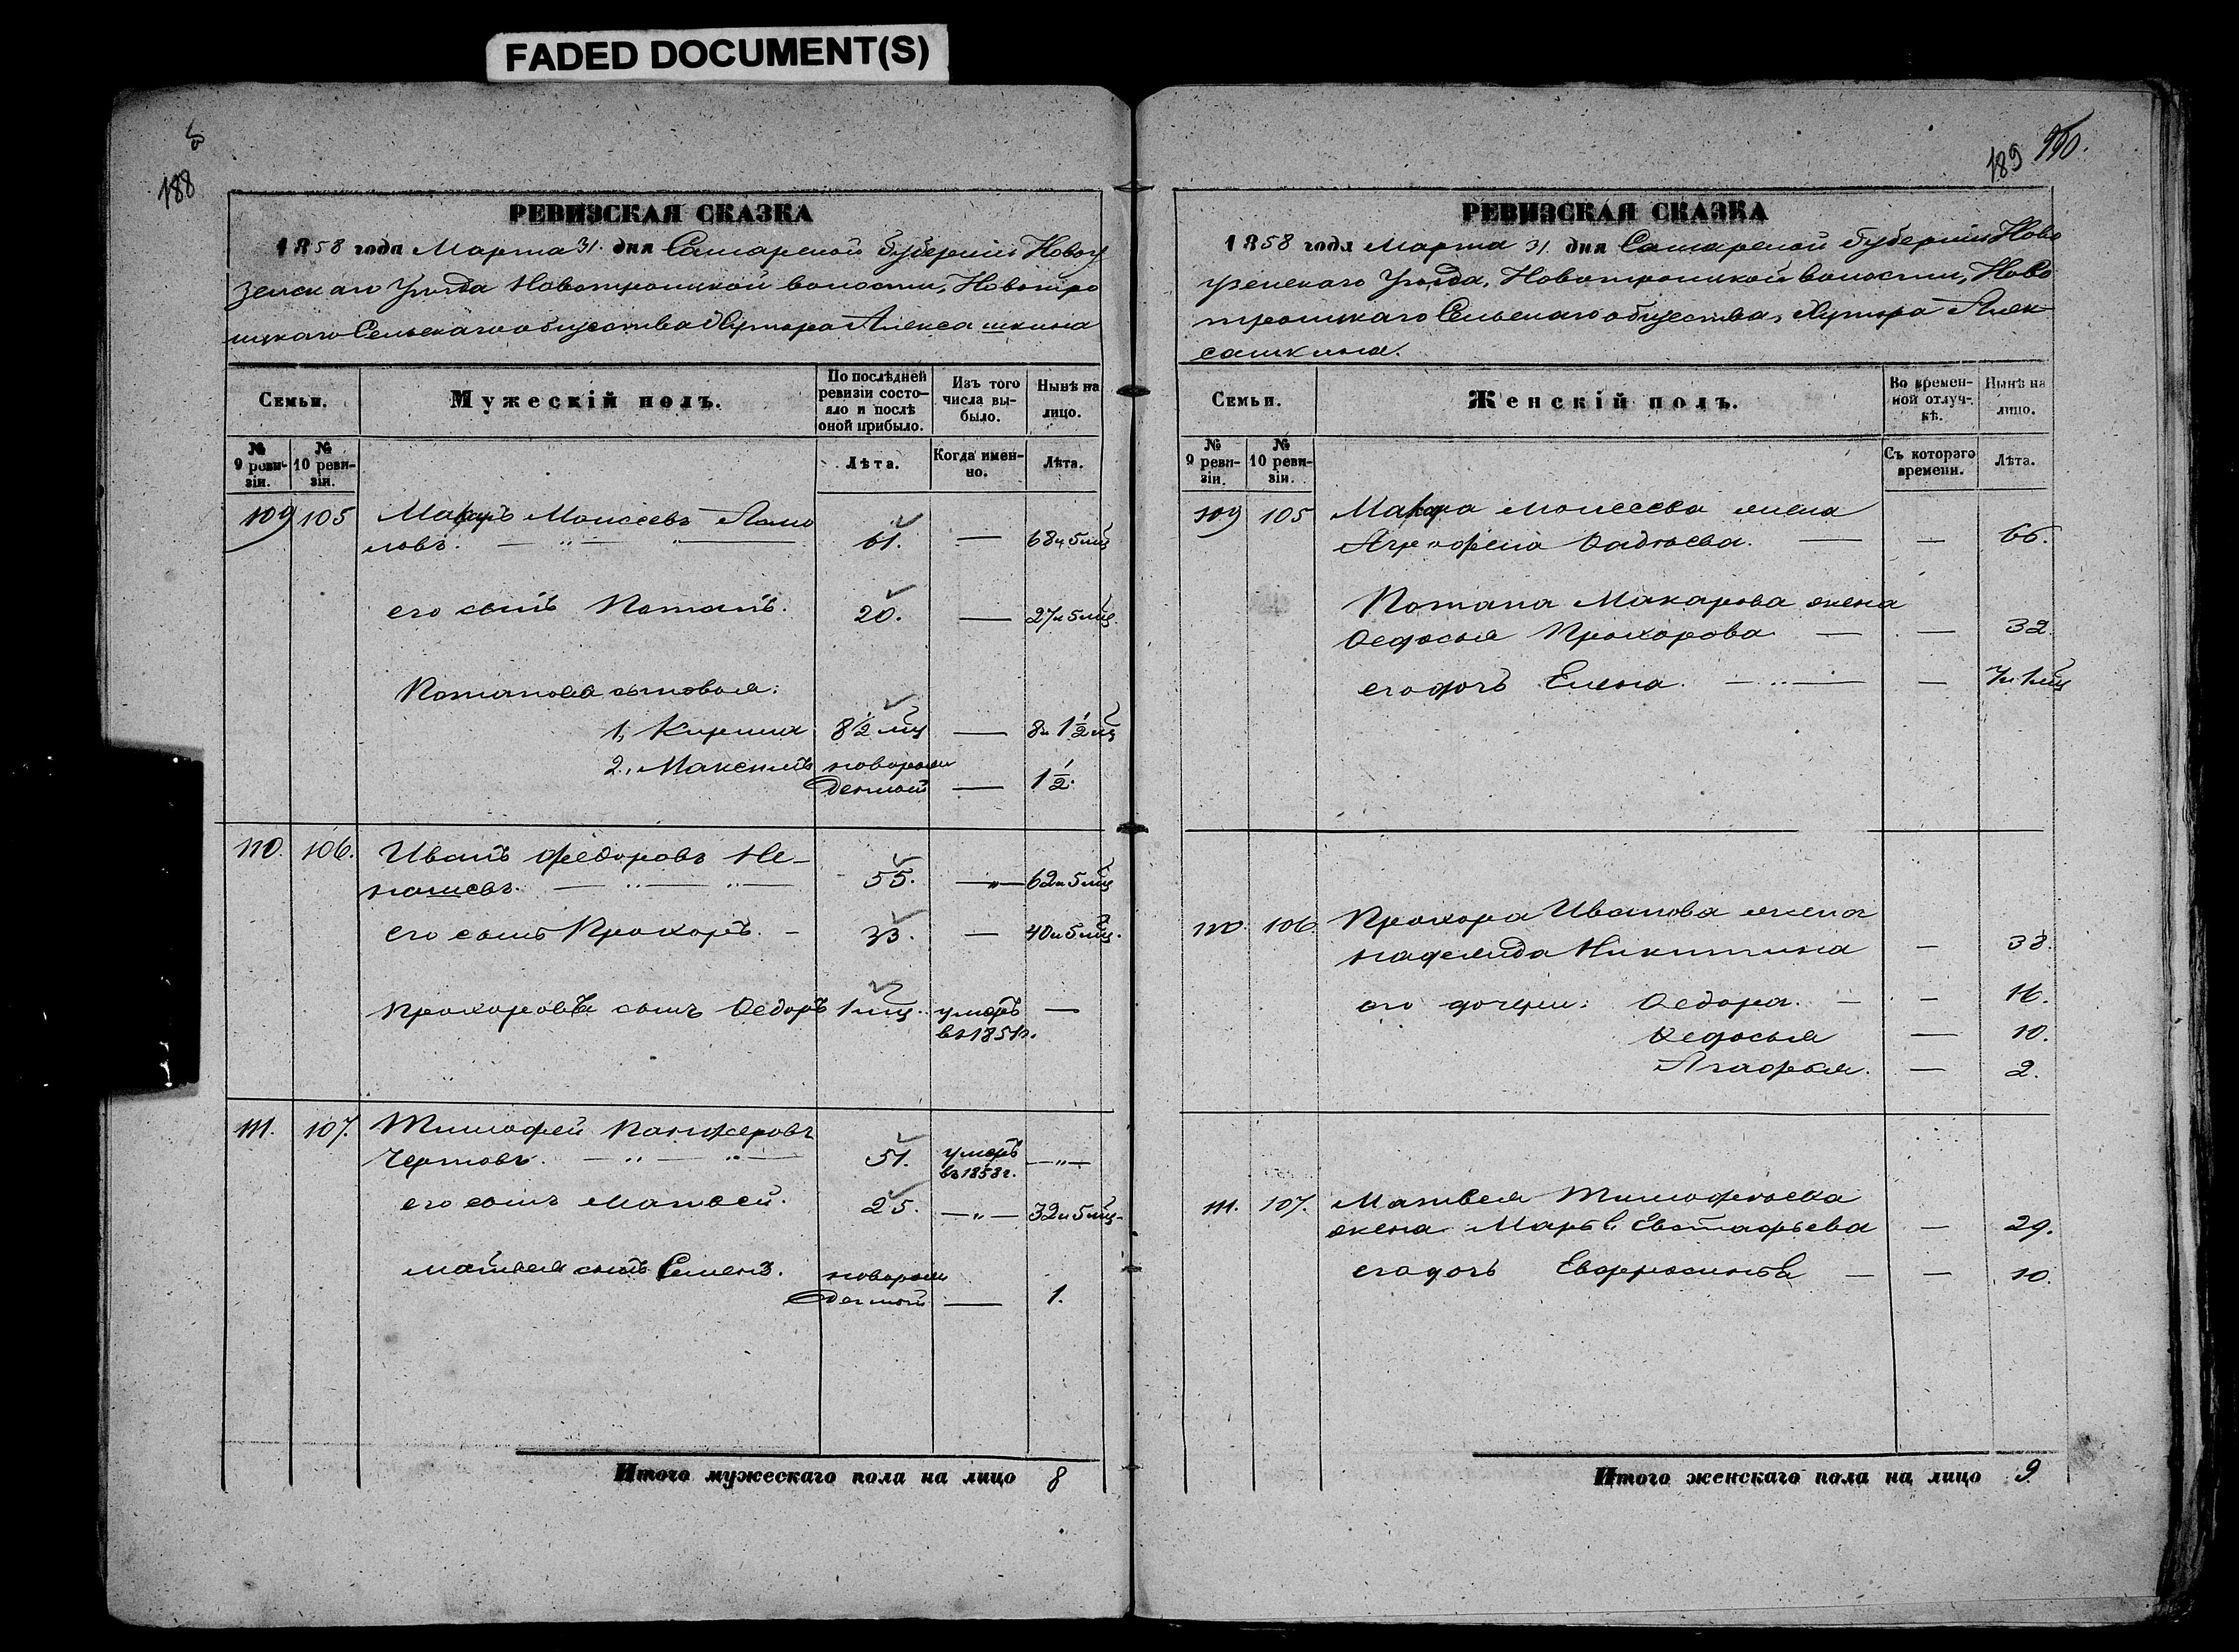 FADED DOCUMENT(S)
188
РЕВИЗСКАЯ СКАЗКА
1858 года Марта 31. дня Самарской Губернiи Новоу
зенскаго Уѣзда Новотроицкой волости, Новотро
ицкаго Сельскаго общества Хутора Алексашкина
Семьи.
Мужескiй полъ.
По послѣдней ревизiи состояло и послѣ оной прибыло.
Изъ того числа выбыло.
Нынѣ на лицо.
№ 9 ревизiи.
№ 10 ревизiи.
Лѣта.
Когда именно.
Лѣта.
109 105 Макаръ Моисеевъ
61. — 68 и 5 мц
его сынъ Потапъ. 20. — 27 и 5 мц
Потапова сыновья:
1, Кирила 8 1/2 мц — 8 и 1 1/2 мц
2., Максимъ новорож
денной — 1 1/2.
110. 106. Иванъ Федоровъ Не-
нашевъ. 55. —"— 62 и 5 мц
его сынъ Прохоръ. - 33. — 40 и 5 мц.
Прохоровъ сынъ Ѳедоръ 1 мц. умеръ —
въ 1851г.
111. 107. Тимофей
Чертовъ. 51. умеръ —"—
въ 1858 г.
его сынъ Матвей. 25. —"— 32 и 5 мц.
Матвея сынъ Семенъ. новорож
денной — 1.
Итого мужескаго пола на лицо 8
189 190.
РЕВИЗСКАЯ СКАЗКА
1858 года Марта 31. дня Самарской Губернiи Ново
узенскаго Уѣзда, Новотроицкой волости, Ново
троицкаго Сельскаго общества, Хутора Алек
сашкина.
Семьи.
Женскiй полъ.
Во временной отлучкѣ.
Нынѣ на лицо.
№ 9 ревизiи.
№ 10 ревизiи.
Съ котораго времени.
Лѣта.
109 105 Макара Моисеева жена
Агрофена Фадѣева. — — 66.
Потапа Макарова жена
Ѳедосья Прохорова — — 32.
его дочь Елена. — — 7 и 1 мц
110. 106. Прохора Иванова жена
Надежда Никитина — 38.
его дочери: Ѳедора. — — 16.
Ѳедосья — 10.
Агафья. — 2.
111. 107. Матвея Тимофѣева
жена Марья Евстафьева — 29.
его дочь Евфросинья — — 10.
Итого женскаго пола на лицо 9.